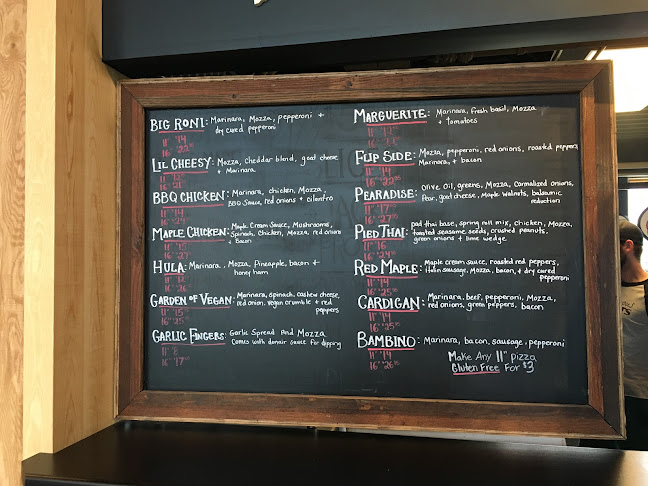 BIG RONI: Marinara, Mozza, pepperoni +
dry cured pepperoni
11" 14
16" 22
LIL CHEESY: Mozza, cheddar blend, goat cheese
+ Marinara
16" 21
BBQ CHICKEN: Marinara, chicken, Mozza,
BBQ Sauce, red onions + cilantro
11" 14
MAPLE CHICKEN: Maple Cream Sauce, Mushrooms,
Spinach, Chicken, Mozza, red onions
+ Bacon
11" 15
16" 27
HULA: Marinara, Mozza, Pineapple, bacon +
honey ham
16" 26
GARDEN OF VEGAN: Marinara, spinach, cashew cheese,
red onion, vegan crumble + red
peppers
11" 15
16" 25
GARLIC FINGERS: Garlic Spread And Mozza
Comes with donair sauce for dipping
11" 8
16" 17
MARGUERITE: Marinara, fresh basil, Mozza
+ tomatoes
FLIP SIDE: Mozza, pepperoni, red onions, roasted peppers,
Marinara, + bacon
11" 14
PEARADISE: Olive Oil, greens, Mozza, Carmalized onions,
Pear, goat cheese, Maple Walnuts, balsamic
reduction
16" 27
PIED THAI: pad thai base, spring roll mix, chicken, Mozza,
toasted seasame seeds, crushed peanuts,
green onions + lime wedge
11" 16
16" 24
RED MAPLE: Maple cream sauce, roasted red peppers,
italian sausage, Mozza, bacon, + dry cured
pepperoni
11" 14
16" 25
CARDIGAN: Marinara, beef, pepperoni, Mozza,
red onions, green peppers, bacon
11" 14
16" 25
BAMBINO: Marinara, bacon, sausage, pepperoni
11" 14
16" 26
Make Any 11" pizza
Gluten Free For $3